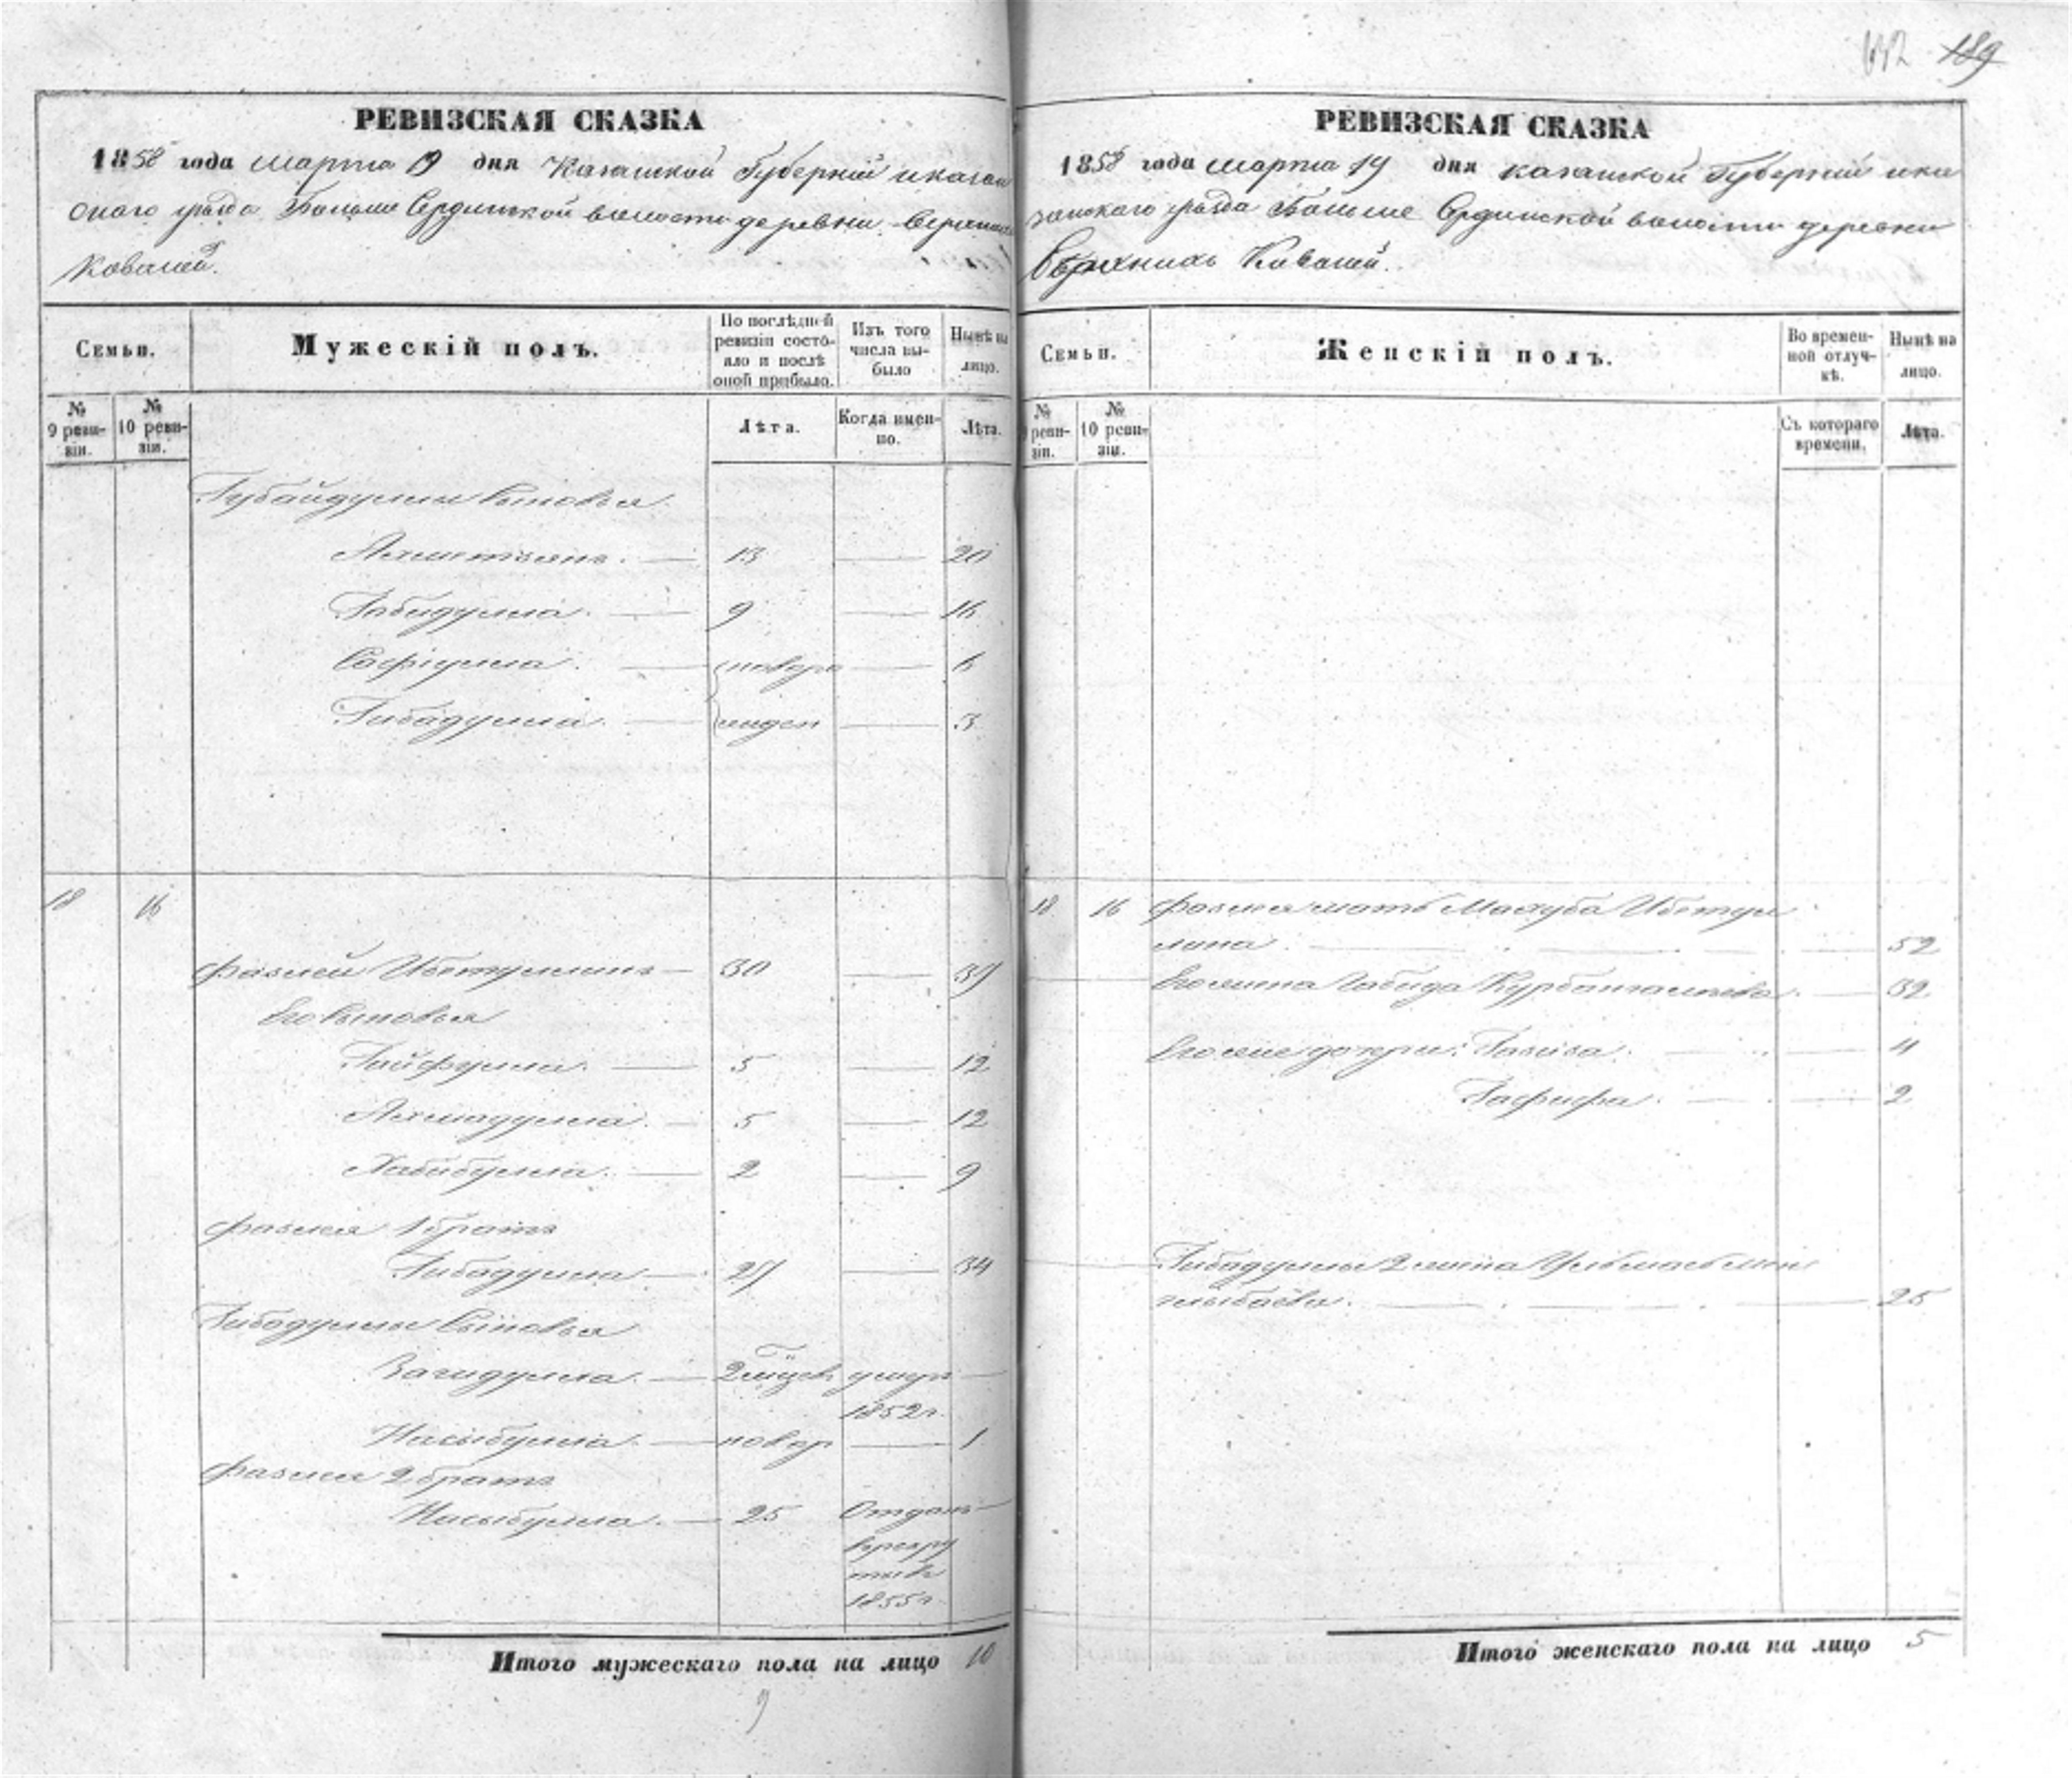 632 189
РЕВИЗСКАЯ СКАЗКА
1858 года марта 19 дня Казанской Губернии и казан
скаго уезда Больше Сердинской волости деревни Верхнихъ
Ковалей.
Семьи.
Мужескій полъ.
По послѣдней ревизіи состояло и послѣ оной прибыло.
Изъ того числа выбыло
Нынѣ на лицо.
№ 9 ревизіи.
№ 10 ревизіи.
Лѣта.
Когда именно.
Лѣта.
Губайдуллы сыновья
Ахметзянъ. 13 20
Габидулла. 9 16
Сафіулла. новоро 6
Гибадулла. жден 3
18 16
Фазлей Ибетуллинъ 30 37
Его сыновья
Гайфулла. 5 12
Ахмадулла. 5 12
Хабибулла. 2 9
Фазлея 1 братъ
Гибадулла 27 34
Гибадуллы сыновья
Вагидулла. умеръ
1852 г.
Насыбулла. новор 1
Фазлея 2 братъ
Насыбулла. 25 Отданъ
врекру
ты въ
1855 г.
Итого мужескаго пола на лицо 10
9
РЕВИЗСКАЯ СКАЗКА
1858 года марта 19 дня казанской Губерніи и ка
занскаго уезда Больше Сердинской волости деревни
Верхнихъ Ковалей.
Семьи.
Женскій полъ.
Во временной отлучкѣ.
Нынѣ на лицо.
№ ревизіи.
№ 10 ревизіи.
Съ котораго времени.
Лѣта.
18 16 Фазлея мать Махуба Ибетул
лина. 52
Его жена Габида Курбангалеева. 32
Его же дочери: Газиза. 4
Гафифа. 2
Гибадуллы 2 жена
25
Итого женскаго пола на лицо 5